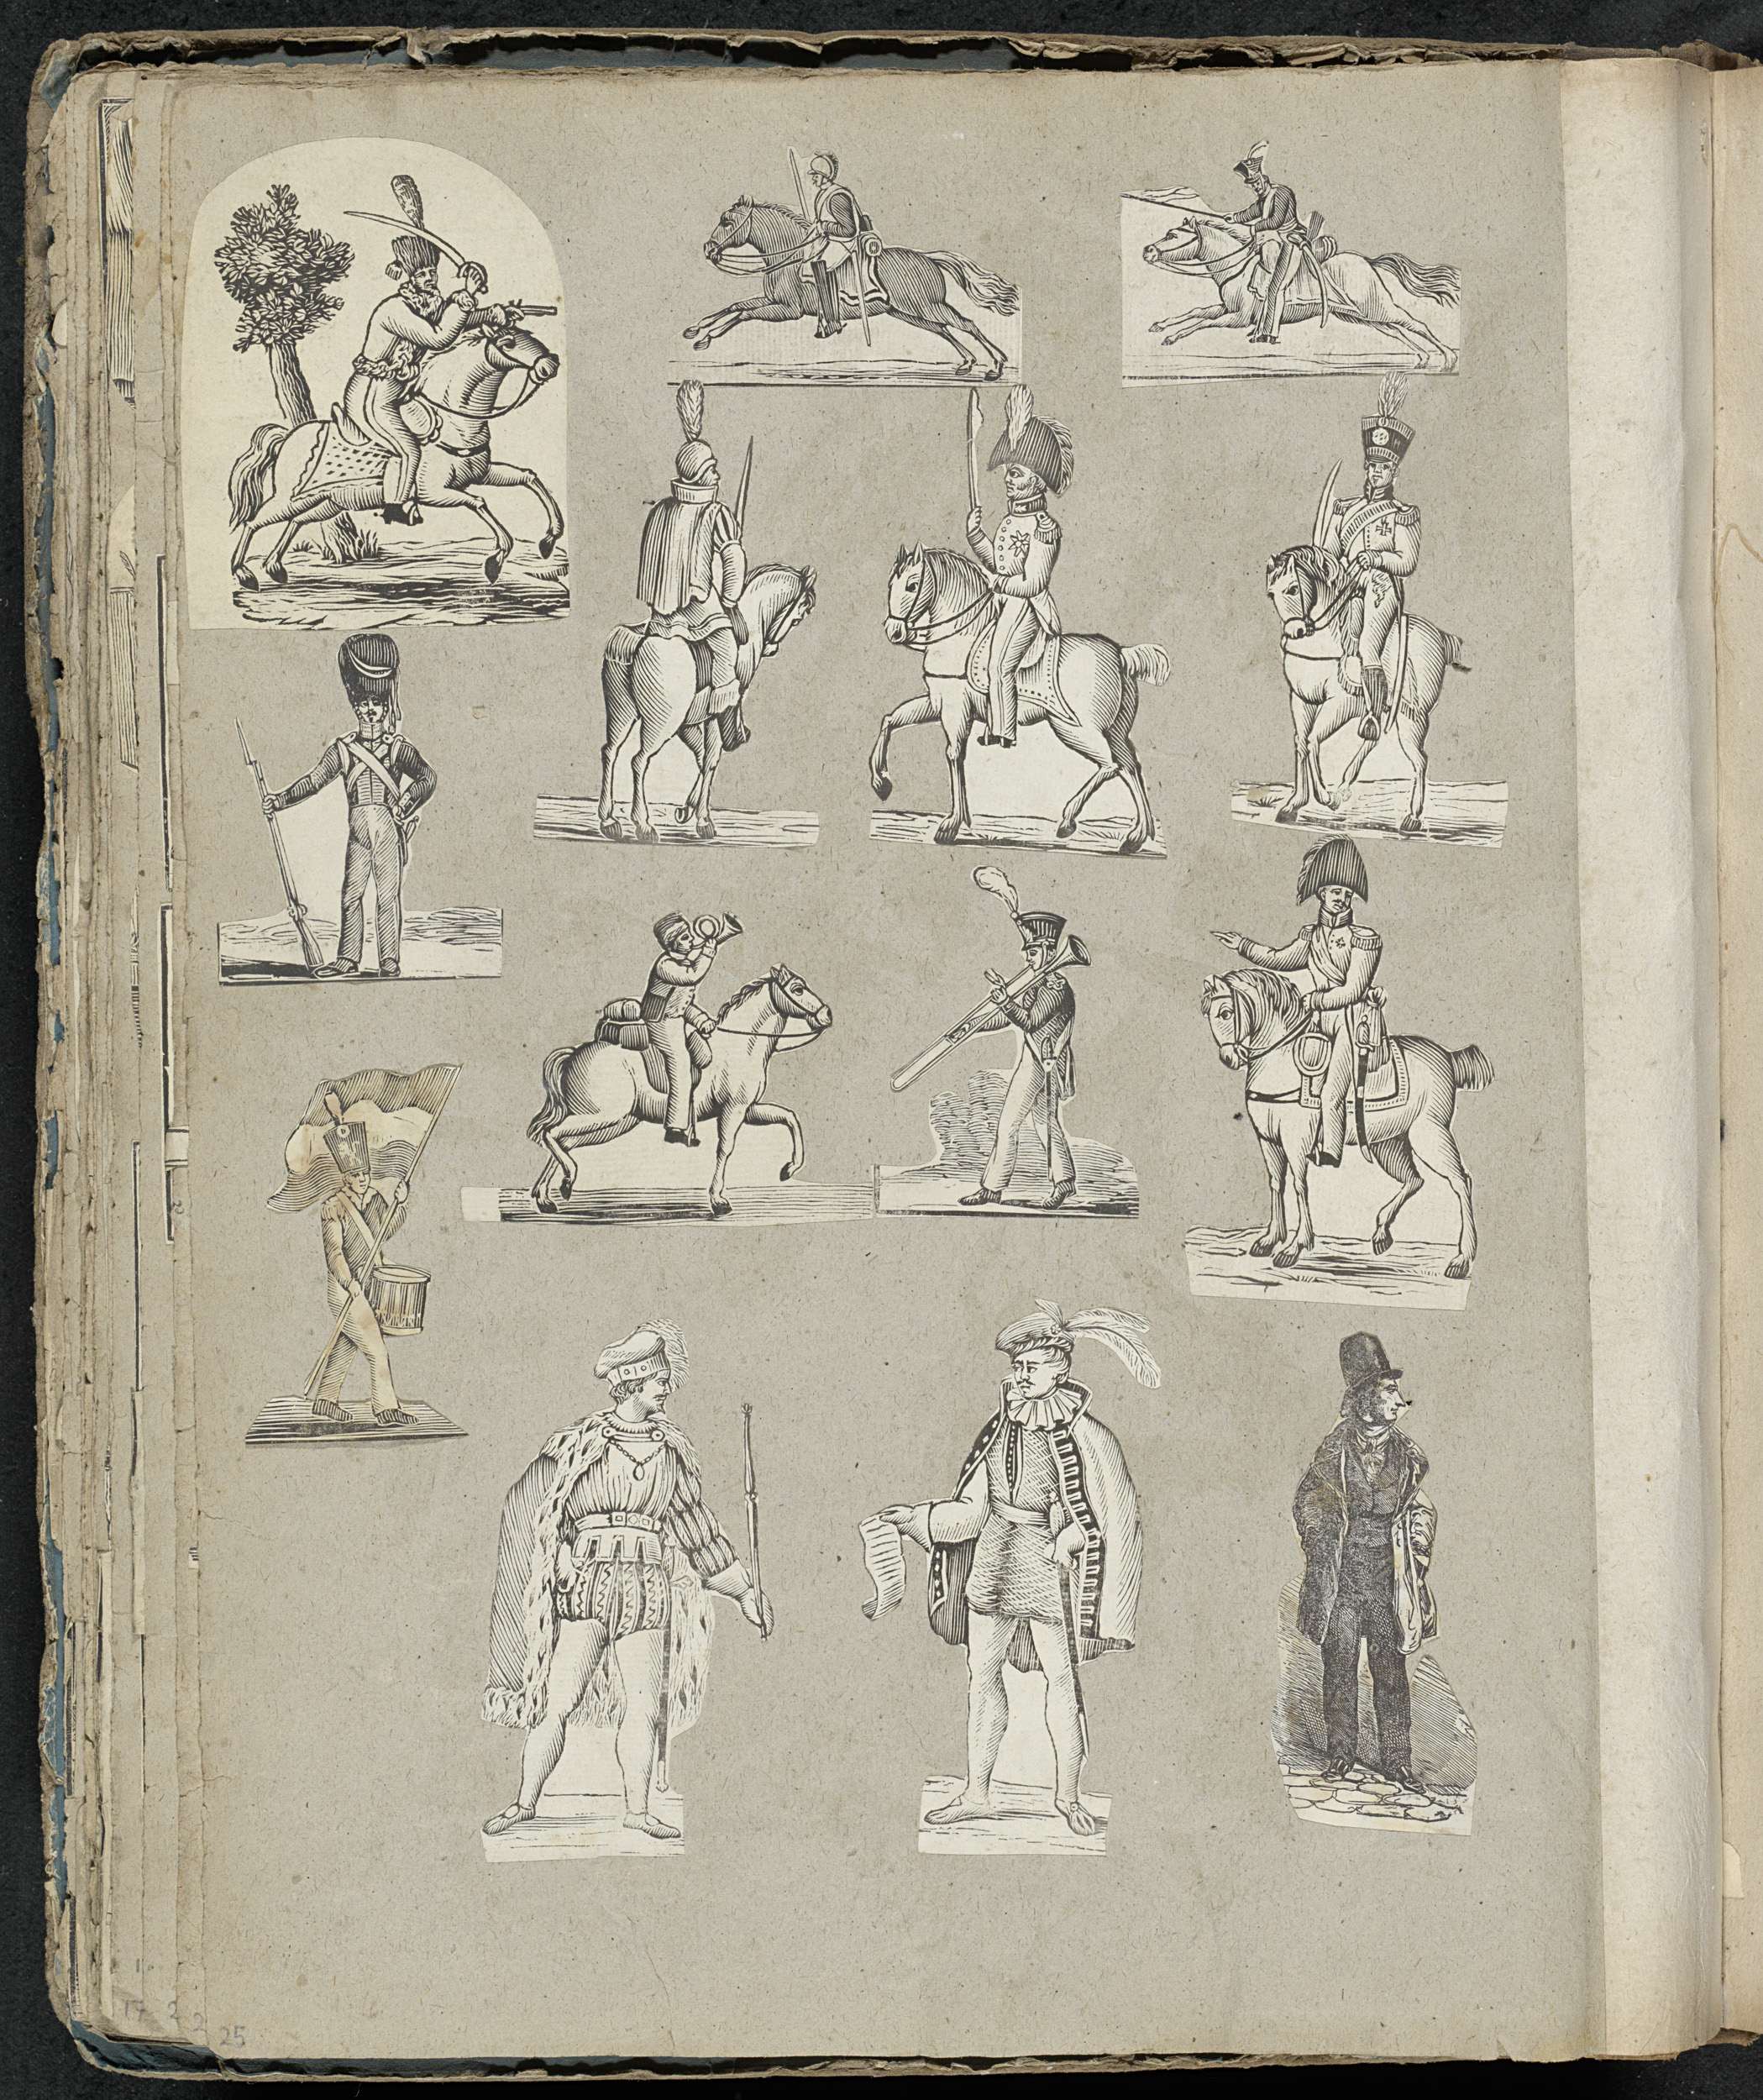 17
2
2
25